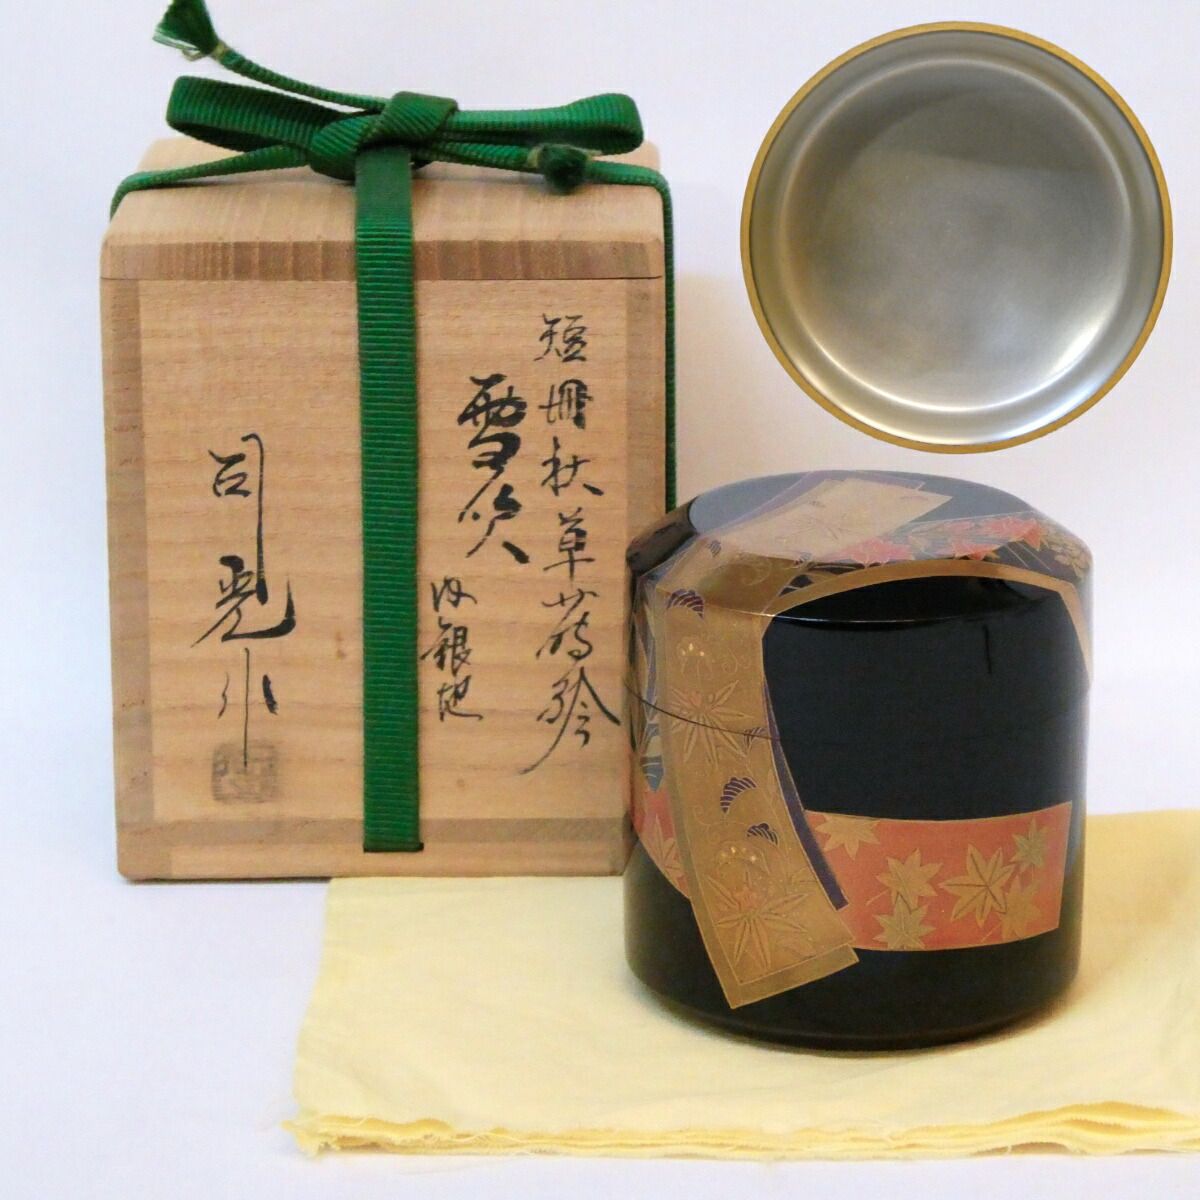 短冊秋草蒔絵
雪吹
内銀地
司光作